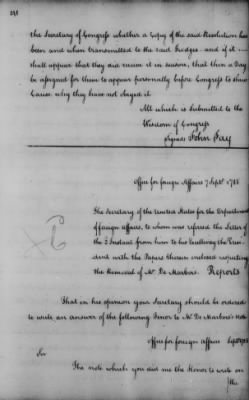 the Secretary of Congress whether a Copy of the said Resolution has
been and when transmitted to the said Judges and if it
shall appear that they did receive it in season, that then a Day
be assigned for them to appear personally before Congress to shew
Cause why they have not obeyed it
All which is submitted to the
Wisdom of Congress
signed John Jay
Office for foreign Affairs 7 Sept. 1785
The Secretary of the United States for the Department
of foreign affairs, to whom was referred the Letter of
the 2 Instant from him to his Excellency the Presi
dent with the Papers therein enclosed respecting
the Removal of Mr. De Marbois. Reports
That in his opinion your Secretary should be ordered
to write an answer of the following Tenor to Mr De Marbois's note
Office for foreign affairs Sept 1785
Sir
The note which you did me the Honor to write on
the